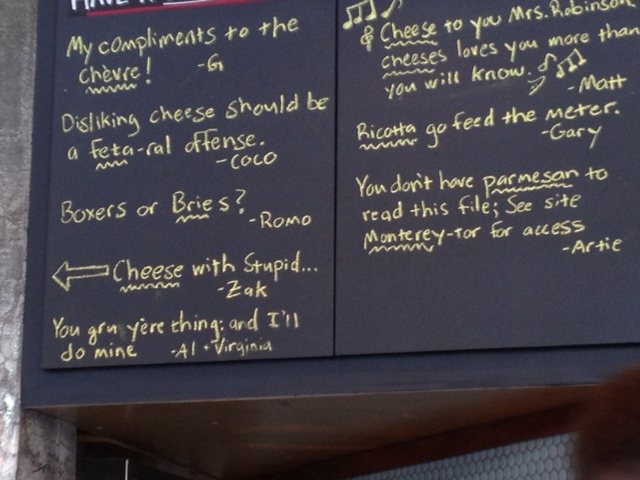 My compliments to the
chèvre! -G
Disliking cheese should be
a feta-ral offense.
-COCO
Boxers or Bries?
-Romo
Cheese with Stupid...
-Zak
You gruyère thing; and I'll
do mine -Al + Virginia
& Cheese to you Mrs. Robinson
cheeses loves you more than
you will know.
-Matt
Ricotta go feed the meter.
-Gary
You don't have parmesan to
read this file; See site
Monterey-tor for access
-Artie